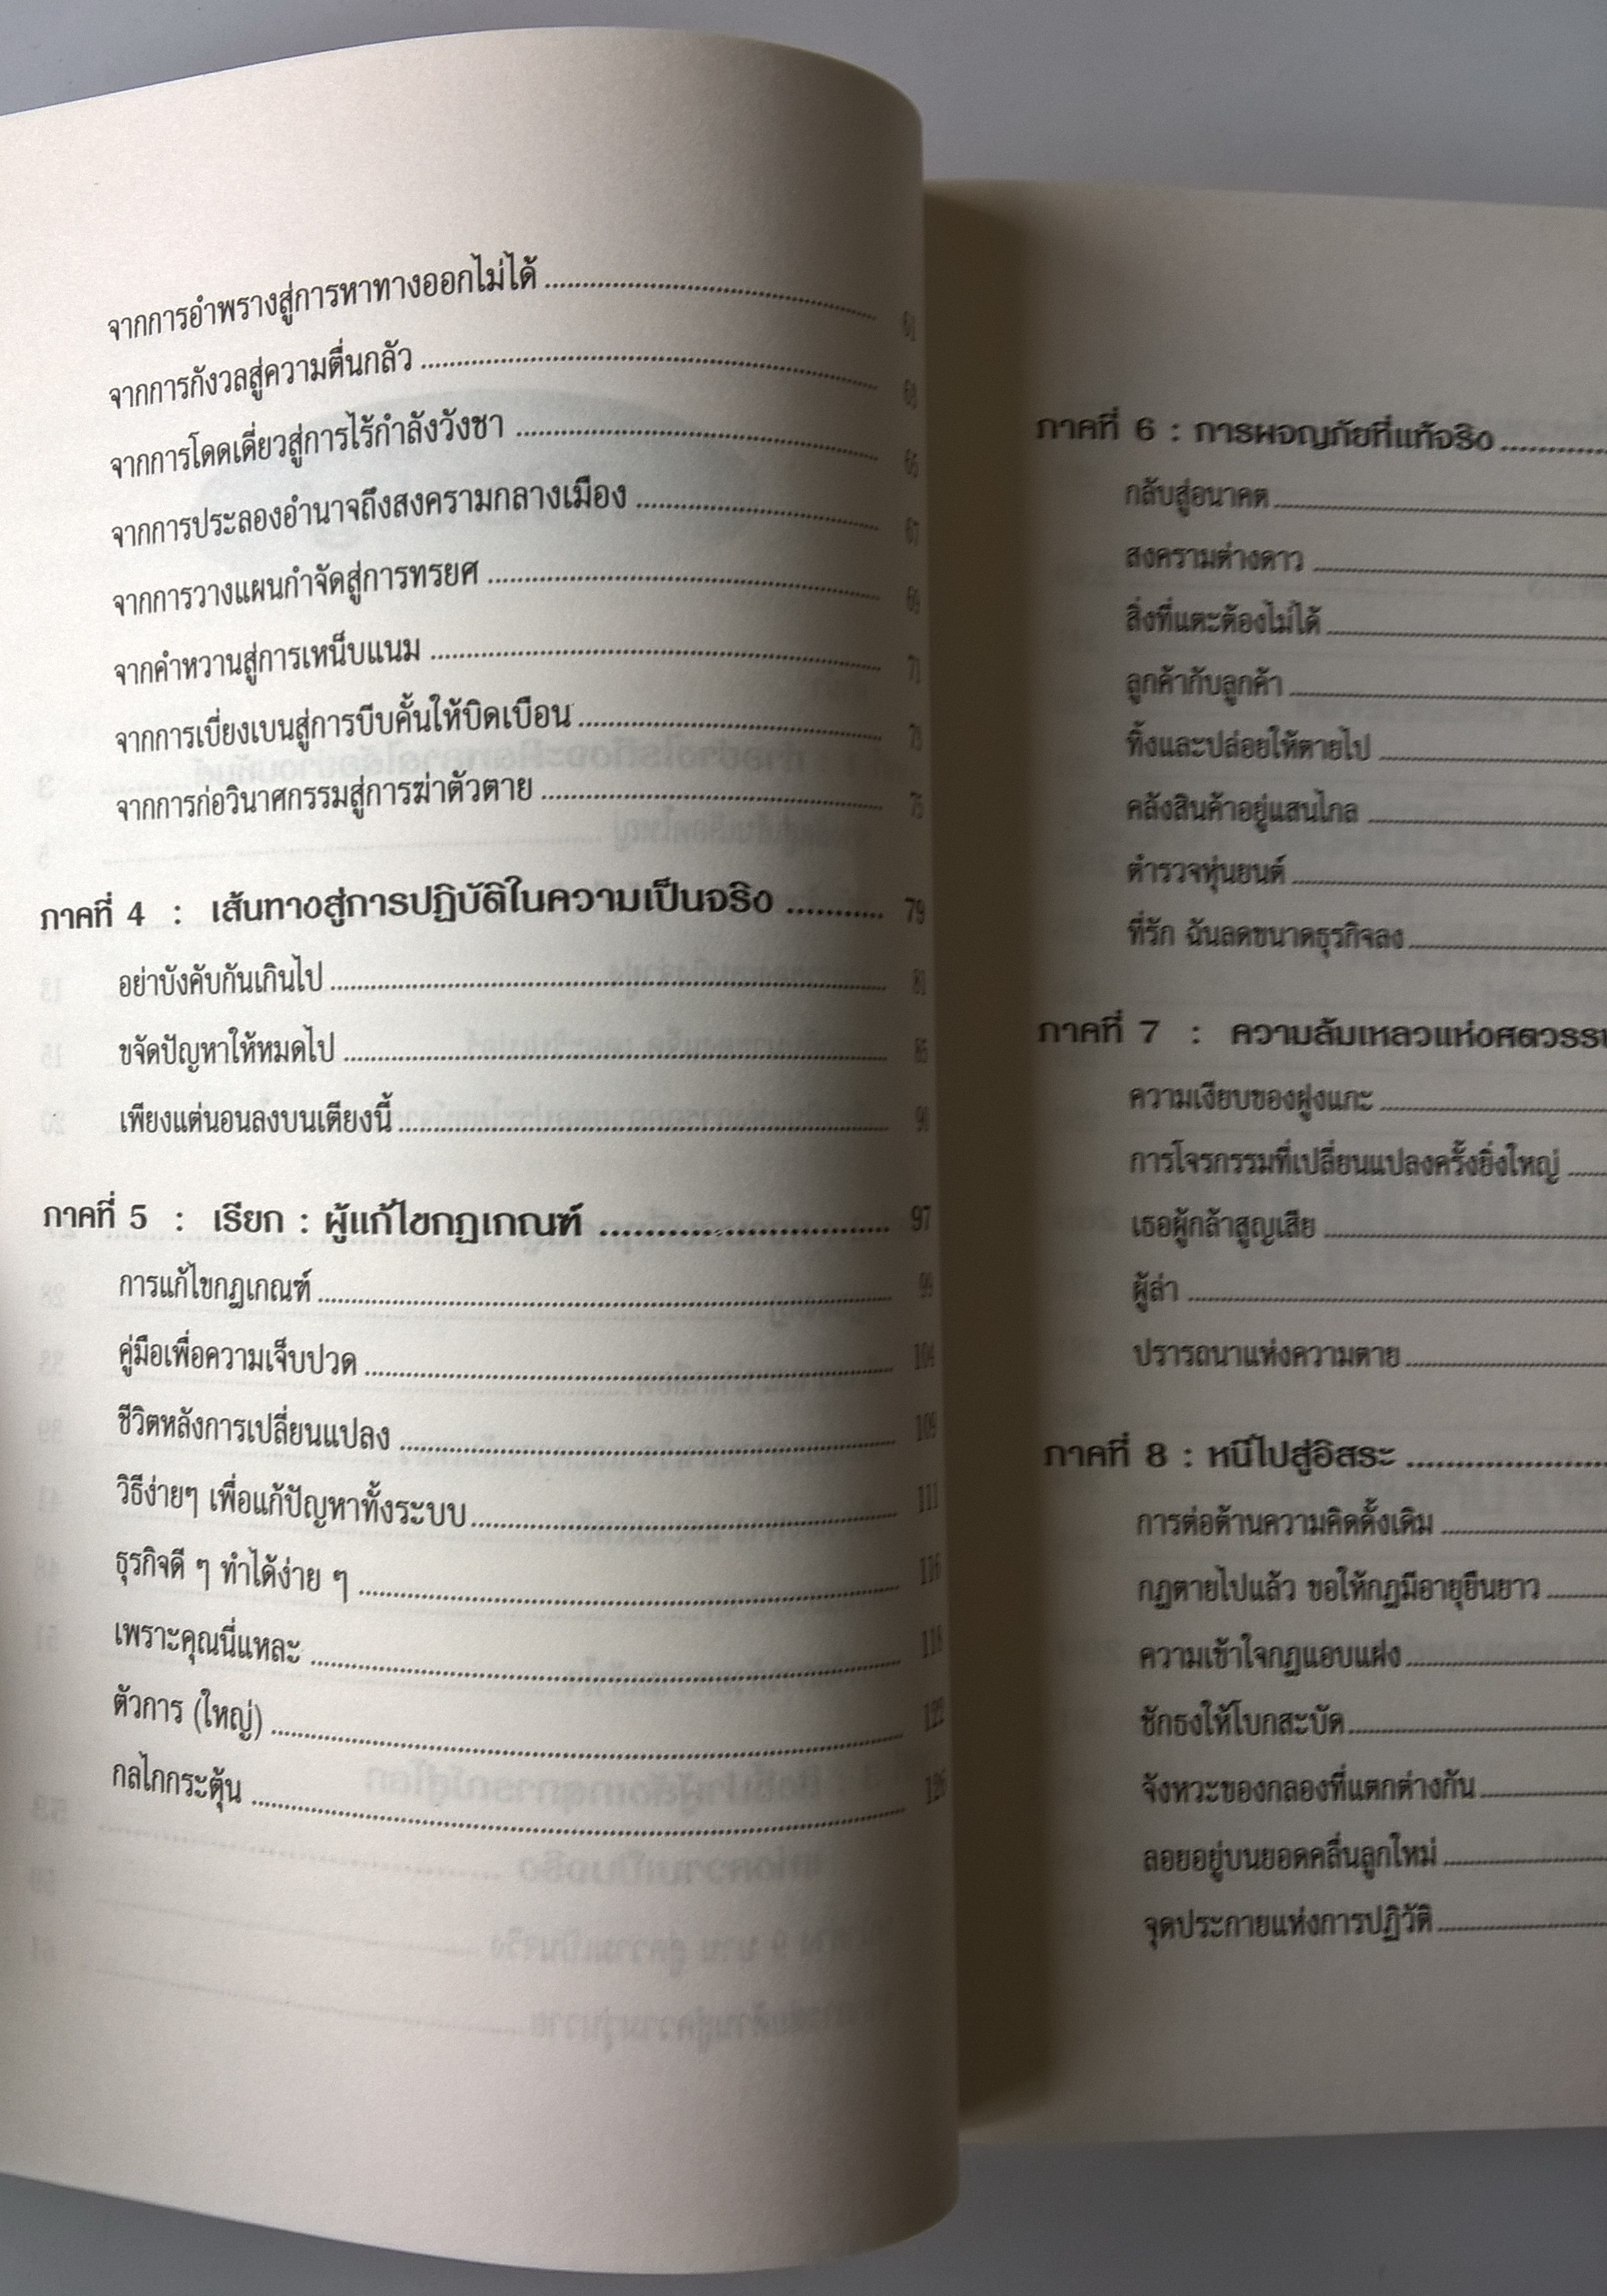 จากการอำพรางสู่การหาทางออกไม่ได้ ........ 61
จากการกังวลสู่ความตื่นกลัว ........
จากการโดดเดี่ยวสู่การไร้กำลังวังชา ........ 65
จากการประลองอำนาจถึงสงครามกลางเมือง ........ 67
จากการวางแผนกำจัดสู่การทรยศ ........ 69
จากคำหวานสู่การเหน็บแนม ........ 71
จากการเบี่ยงเบนสู่การบีบคั้นให้บิดเบือน ........ 73
จากการก่อวินาศกรรมสู่การฆ่าตัวตาย ........ 75
ภาคที่ 4 : เส้นทางสู่การปฏิบัติในความเป็นจริง ........ 79
อย่าบังคับกันเกินไป ........ 81
ขจัดปัญหาให้หมดไป ........ 85
เพียงแต่นอนลงบนเตียงนี้ ........
ภาคที่ 5 : เรียก : ผู้แก้ไขกฎเกณฑ์ ........ 97
การแก้ไขกฎเกณฑ์ ........ 99
คู่มือเพื่อความเจ็บปวด ........ 104
ชีวิตหลังการเปลี่ยนแปลง ........ 109
วิธีง่ายๆ เพื่อแก้ปัญหาทั้งระบบ ........ 111
ธุรกิจดี ๆ ทำได้ง่าย ๆ ........ 116
เพราะคุณนี่แหละ ........ 118
ตัวการ (ใหญ่) ........ 122
กลไกกระตุ้น ........ 126
ภาคที่ 6 : การผจญภัยที่แท้จริง ........
กลับสู่อนาคต ........
สงครามต่างดาว ........
สิ่งที่แตะต้องไม่ได้ ........
ลูกค้ากับลูกค้า ........
ทิ้งและปล่อยให้ตายไป ........
คลังสินค้าอยู่แสนไกล ........
ตำรวจหุ่นยนต์ ........
ที่รัก ฉันลดขนาดธุรกิจลง ........
ภาคที่ 7 : ความล้มเหลวแห่งศตวรรษ
ความเงียบของฝูงแกะ ........
การโจรกรรมที่เปลี่ยนแปลงครั้งยิ่งใหญ่ ........
เธอผู้กล้าสูญเสีย ........
ผู้ล่า ........
ปรารถนาแห่งความตาย ........
ภาคที่ 8 : หนีไปสู่อิสระ ........
การต่อต้านความคิดดั้งเดิม ........
กฎตายไปแล้ว ขอให้กฎมีอายุยืนยาว ........
ความเข้าใจกฎแอบแฝง ........
ชักธงให้โบกสะบัด ........
จังหวะของกลองที่แตกต่างกัน ........
ลอยอยู่บนยอดคลื่นลูกใหม่ ........
จุดประกายแห่งการปฏิวัติ ........